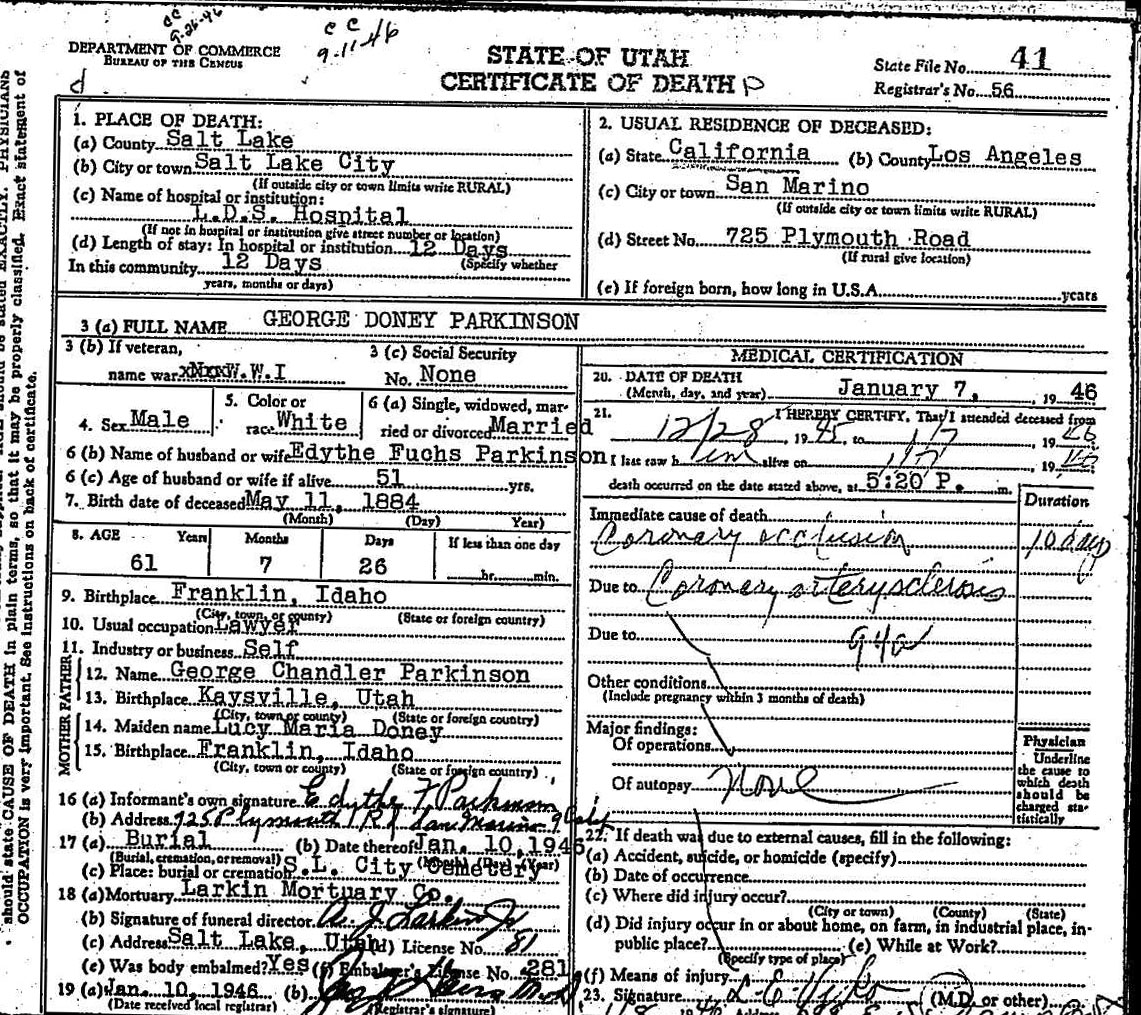 CC
9-26-46
CC
9-11-46
DEPARTMENT OF COMMERCE
BUREAU OF THE CENSUS
d
STATE OF UTAH
CERTIFICATE OF DEATH
State File No. 41
Registrar's No. 56
should state CAUSE OF DEATH in plain terms, so that it may be properly classified. Exact statement of
OCCUPATION is very important. See instructions on back of certificate.
1. PLACE OF DEATH:
(a) County Salt Lake
(b) City or town Salt Lake City
(If outside city or town limits write RURAL)
(c) Name of hospital or institution:
L.D.S. Hospital
(If not in hospital or institution give street number or location)
(d) Length of stay: In hospital or institution 12 Days
(Specify whether
In this community 12 Days
years, months or days)
2. USUAL RESIDENCE OF DECEASED:
(a) State California (b) County Los Angeles
(c) City or town San Marino
(If outside city or town limits write RURAL)
(d) Street No. 725 Plymouth Road
(If rural give location)
(e) If foreign born, how long in U.S.A. years
3 (a) FULL NAME GEORGE DONEY PARKINSON
3 (b) If veteran,
name war W.W.I
3 (c) Social Security
No. None
4. Sex Male
5. Color or
race White
6 (a) Single, widowed, mar-
ried or divorced Married
6 (b) Name of husband or wife Edythe Fuchs Parkinson
6 (c) Age of husband or wife if alive 51 yrs.
7. Birth date of deceased May 11, 1884
(Month) (Day) Year)
8. AGE Years Months Days If less than one day
61 7 26 hr. min.
9. Birthplace Franklin, Idaho
(City, town, or county) (State or foreign country)
10. Usual occupation Lawyer
11. Industry or business Self
FATHER
12. Name George Chandler Parkinson
13. Birthplace Kaysville, Utah
(City, town or county) (State or foreign country)
MOTHER
14. Maiden name Lucy Maria Doney
15. Birthplace Franklin, Idaho
(City, town or county) (State or foreign country)
16 (a) Informant's own signature Edythe F Parkinson
(b) Address 725 Plymouth Rd San Marino 9 Calif
17 (a) Burial (b) Date thereof Jan. 10, 1946
(Burial, cremation, or removal) (Month) (Day) (Year)
(c) Place: burial or cremation S.L. City Cemetery
18 (a) Mortuary Larkin Mortuary Co.
(b) Signature of funeral director A. J. Larkin Jr
(c) Address Salt Lake, Utah (d) License No. 81
(e) Was body embalmed? Yes (f) Embalmer's License No. 281
19 (a) Jan. 10, 1946 (b)
(Date received local registrar) (Registrar's signature)
MEDICAL CERTIFICATION
20. DATE OF DEATH
(Month, day, and year) January 7, 19 46
21. I HEREBY CERTIFY, That I attended deceased from
12/28, 19 45, to 1/7, 19 46
I last saw h im alive on 1/7, 19 46
death occurred on the date stated above, at 5:20 P. m.
Duration
Immediate cause of death
Coronary occlusion 10 days
Due to Coronary arterysclerosis
Due to 94a
Other conditions
(Include pregnancy within 3 months of death)
Major findings:
Of operations
Of autopsy None
Physician
Underline
the cause to
which death
should be
charged sta-
tistically
22. If death was due to external causes, fill in the following:
(a) Accident, suicide, or homicide (specify)
(b) Date of occurrence
(c) Where did injury occur?
(City or town) (County) (State)
(d) Did injury occur in or about home, on farm, in industrial place, in-
public place? (e) While at Work?
(Specify type of place)
(f) Means of injury
23. Signature L. E. Viko (M.D. or other)